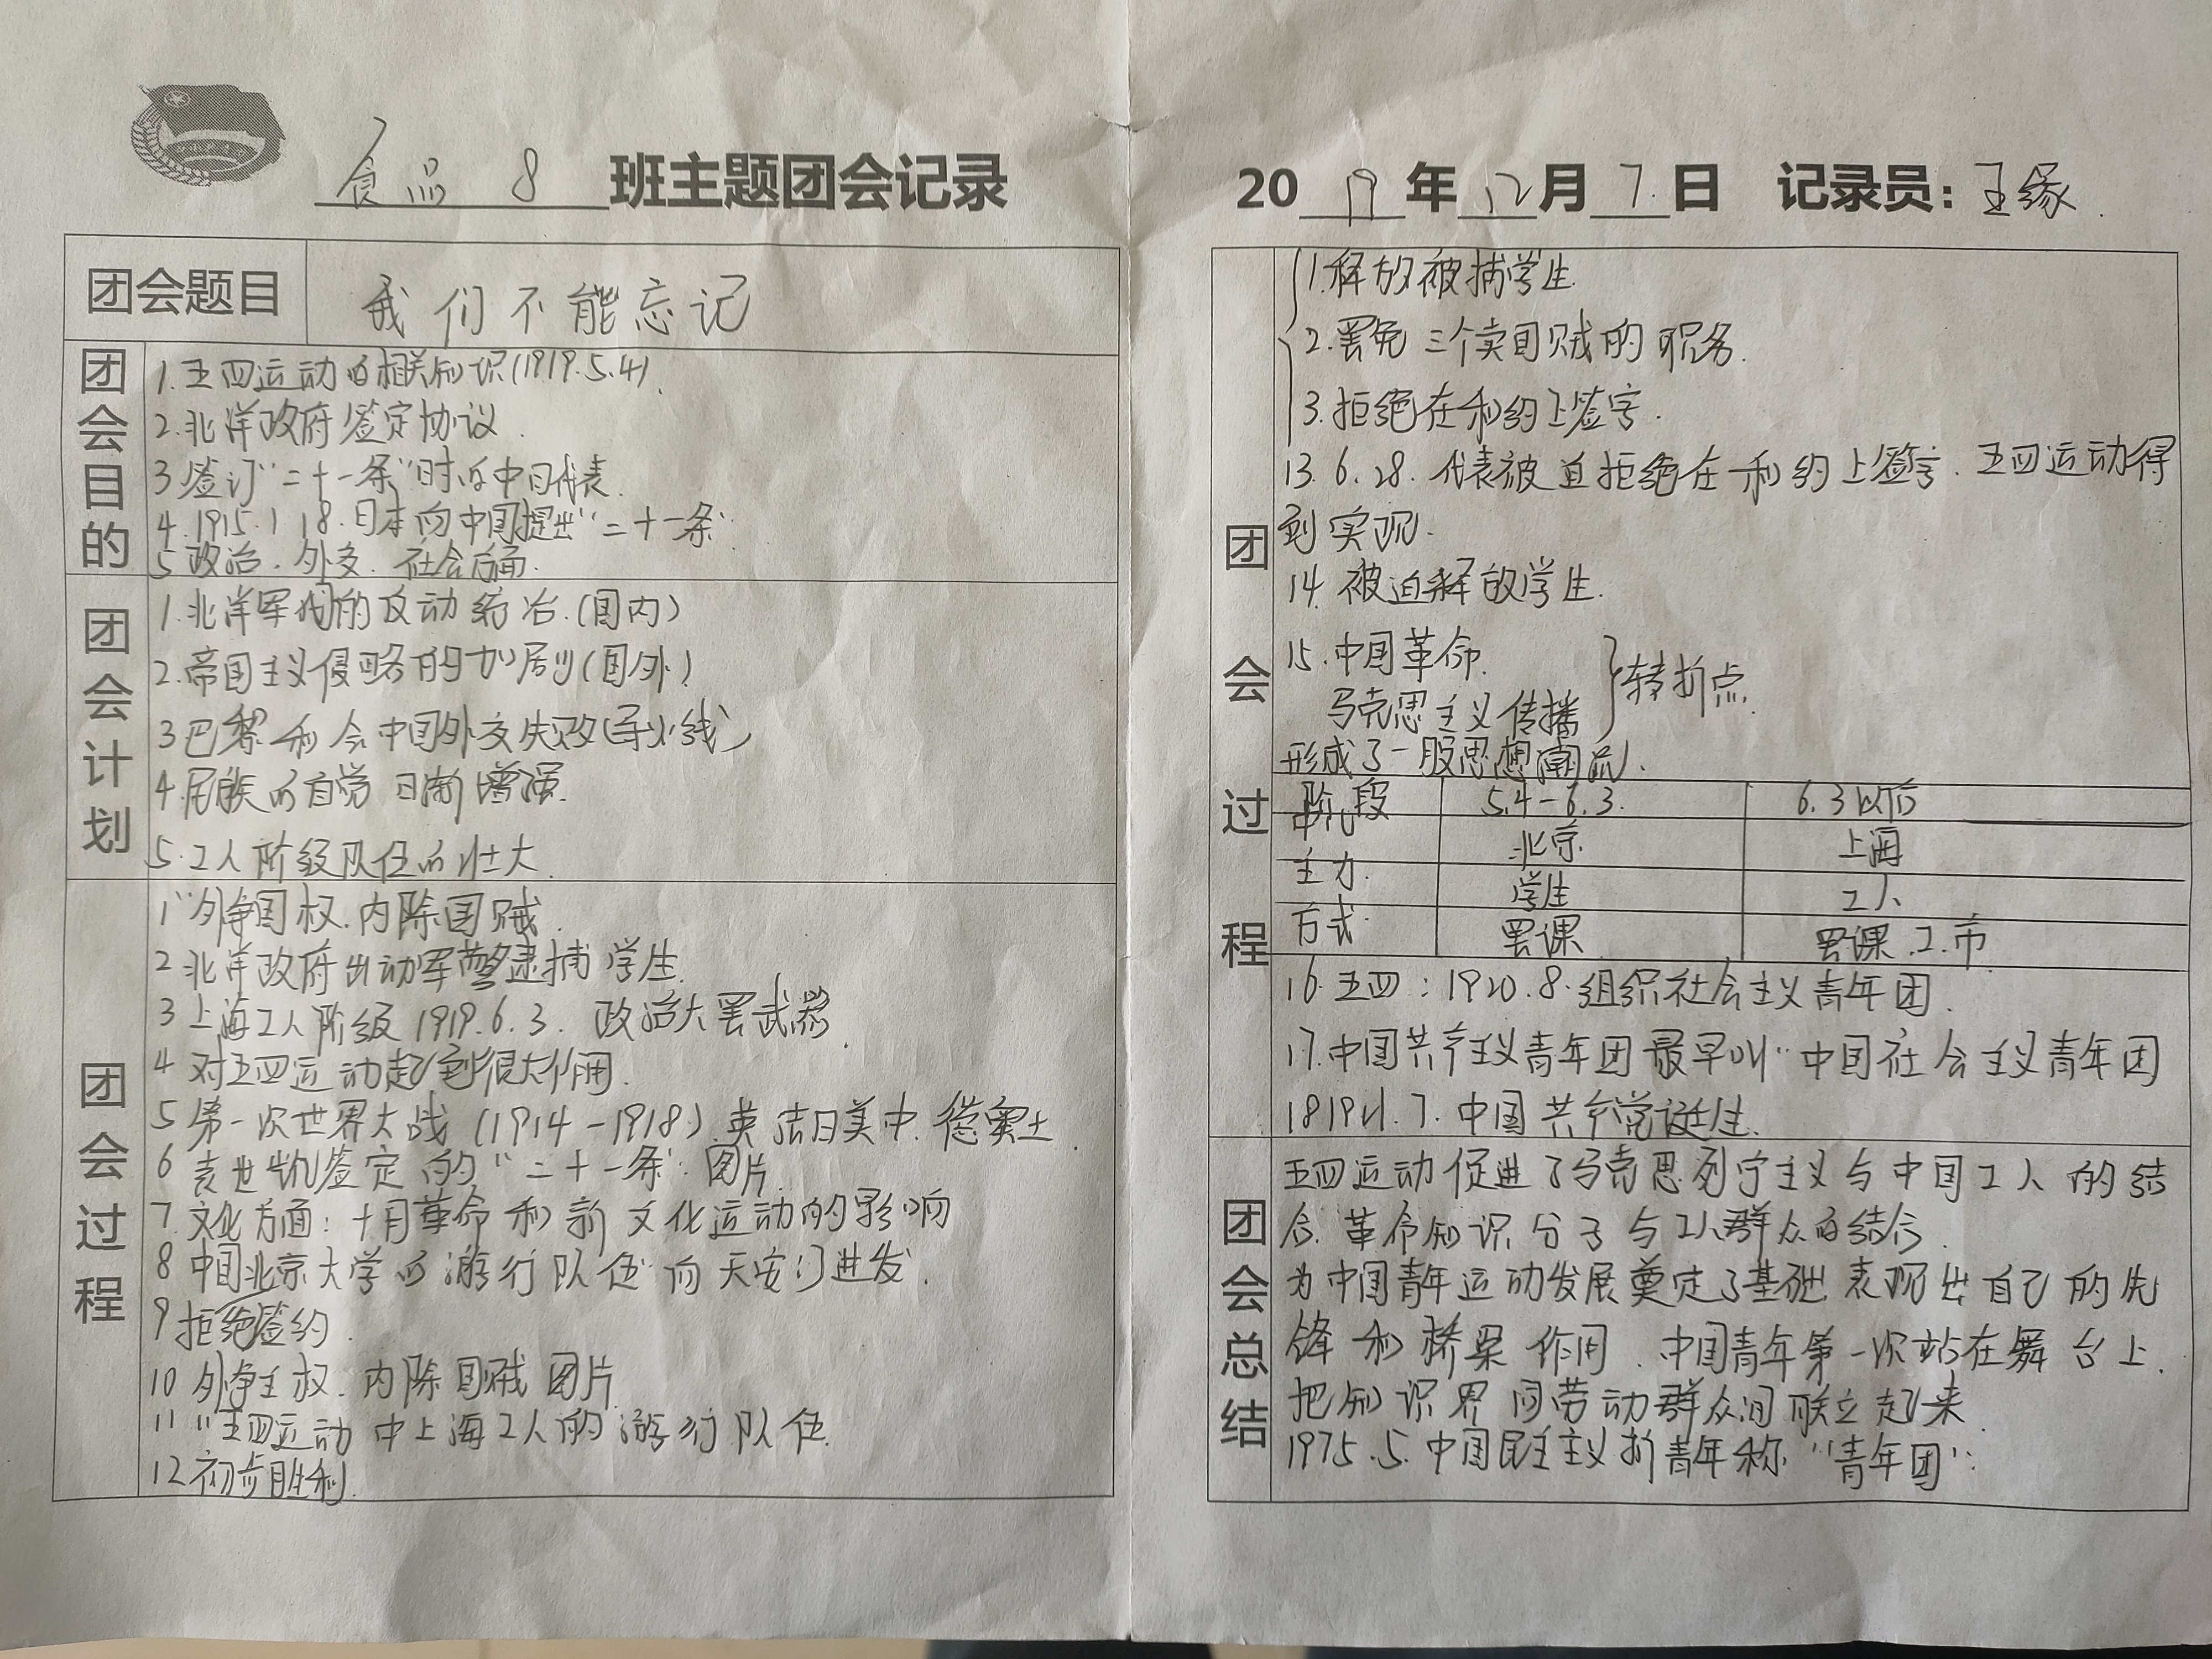 食品8班主题团会记录
团会题目
我们不能忘记
团会目的
1.五四运动的相关知识(1919.5.4).
2.北洋政府签定协议.
3签订"二十一条"时的中日代表.
4.1915.1.18.日本向中国提出"二十一条".
5政治.外交.社会方面.
团会计划
1.北洋军阀的反动统治.(国内)
2.帝国主义侵略的加剧(国外)
3巴黎和会中国外交失败(导火线)
4.民族的自觉日渐增强.
5.工人阶级队伍的壮大.
团会过程
1"外争国权.内除国贼.
2北洋政府出动军警逮捕学生.
3上海工人阶级1919.6.3.政治大罢武器.
4对五四运动起到很大作用.
5第一次世界大战(1914-1918)英法日美中.德奥土.
6袁世凯签定的"二十一条".图片.
7.文化方面:十月革命和新文化运动的影响
8中国北京大学的游行队伍向天安门进发.
9拒绝签约.
10外争主权.内除国贼图片.
11"五四运动中上海工人的游行队伍.
12初步胜利.
20年12月7.日 记录员:王缘.
团会过程
1.释放被捕学生.
2.罢免三个卖国贼的职务.
3.拒绝在和约上签字.
13.6.28.代表被迫拒绝在和约上签字.五四运动得
到实现.
14.被迫释放学生.
15.中国革命.
马克思主义传播 }转折点.
形成了一股思想潮流.
阶段 5.4-6.3. 6.3以后
中心 北京 上海
主力. 学生 工人
方式 罢课 罢课.工.市.
16.五四:1920.8.组织社会主义青年团.
17.中国共产主义青年团最早叫"中国社会主义青年团
181921.7.中国共产党诞生.
团会总结
五四运动促进了马克思列宁主义与中国工人的结
合.革命知识分子与工人群众的结合.
为中国青年运动发展奠定了基础.表现出自己的先
锋和桥梁作用.中国青年第一次站在舞台上.
把知识界同劳动群众间联立起来.
1975.5.中国民主主义新青年称"青年团".